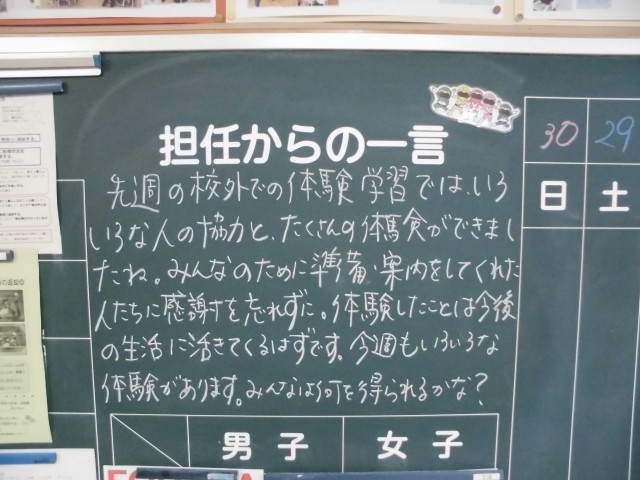 担任からの一言
先週の校外での体験学習では、いろ
いろな人の協力と、たくさんの体験ができまし
たね。みんなのために準備・案内をしてくれた
人たちに感謝を忘れずに。体験したことは今後
の生活に活きてくるはずです。今週もいろいろな
体験があります。みんなは何を得られるかな？
30 29
日 土
男子 女子